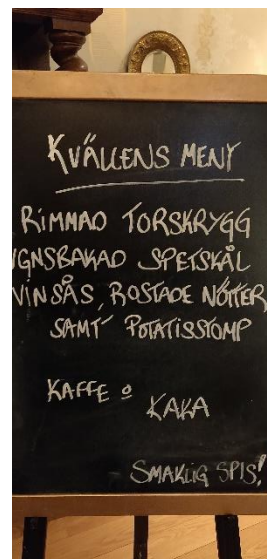 KVÄLLENS MENY
RIMMAD TORSKRYGG
UGNSBAKAD SPETSKÅL
VINSÅS, ROSTADE NÖTTER
SAMT POTATISSTOMP
KAFFE o
KAKA
SMAKLIG SPIS!